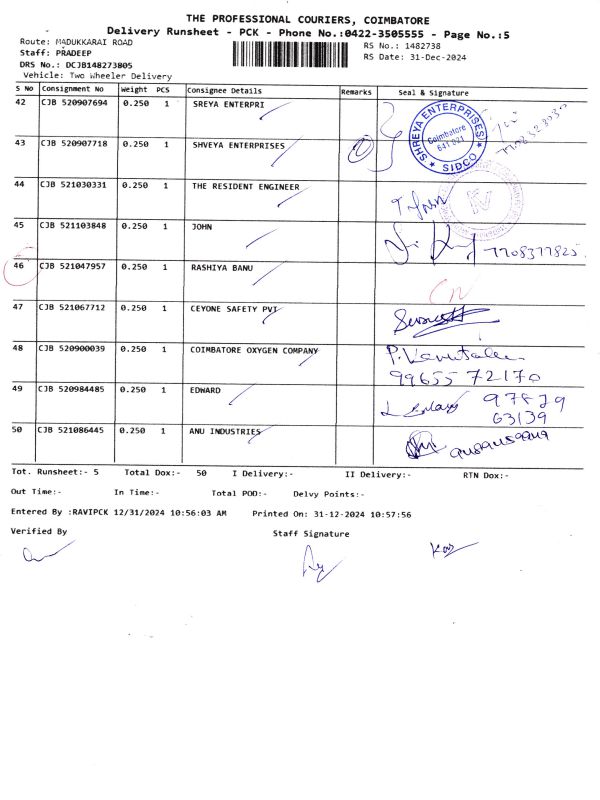 THE PROFESSIONAL COURIERS, COIMBATORE
Delivery Runsheet - PCK - Phone No.:0422-3505555 - Page No.:5
Route: MADUKKARAI ROAD
RS No.: 1482738
Staff: PRADEEP
RS Date: 31-Dec-2024
DRS No.: DCJB148273805
Vehicle: Two Wheeler Delivery
S No Consignment No Weight PCS Consignee Details Remarks Seal & Signature
42 CJB 520907694 0.250 1 SREYA ENTERPRI
SHREYA ENTERPRISES Coimbatore 641 021 SIDCO
43 CJB 520907718 0.250 1 SHVEYA ENTERPRISES
44 CJB 521030331 0.250 1 THE RESIDENT ENGINEER
45 CJB 521103848 0.250 1 JOHN
7708377825
46 CJB 521047957 0.250 1 RASHIYA BANU
47 CJB 521067712 0.250 1 CEYONE SAFETY PVT
48 CJB 520900039 0.250 1 COIMBATORE OXYGEN COMPANY
99655 72170
49 CJB 520984485 0.250 1 EDWARD
63139
50 CJB 521086445 0.250 1 ANU INDUSTRIES
Tot. Runsheet:- 5 Total Dox:- 50 I Delivery:- II Delivery:- RTN Dox:-
Out Time:- In Time:- Total POD:- Delvy Points:-
Entered By :RAVIPCK 12/31/2024 10:56:03 AM Printed On: 31-12-2024 10:57:56
Verified By Staff Signature